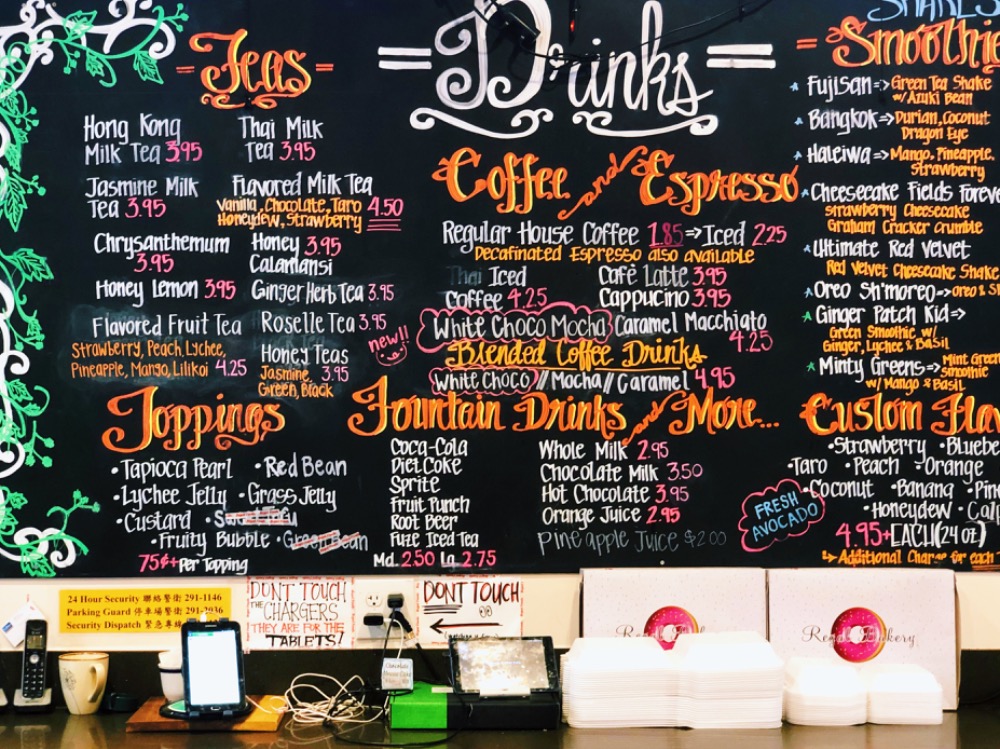 = Drinks =
- Teas -
Hong Kong
Milk Tea 3.95
Thai Milk
Tea 3.95
Jasmine Milk
Tea 3.95
Flavored Milk Tea
Vanilla, Chocolate, Taro
Honeydew, Strawberry 4.50
Chrysanthemum
3.95
Honey 3.95
Calamansi
Honey Lemon 3.95
Ginger Herb Tea 3.95
Flavored Fruit Tea
Strawberry, Peach, Lychee,
Pineapple, Mango, Lilikoi 4.25
Roselle Tea 3.95
Honey Teas
Jasmine 3.95
Green, Black
Toppings
•Tapioca Pearl •Red Bean
•Lychee Jelly •Grass Jelly
•Custard
•Fruity Bubble •Green Bean
75¢+ Per Topping
Coffee and Espresso
Regular House Coffee 1.85 => Iced 2.25
Decafinated Espresso also available
Thai Iced
Coffee 4.25
Café Latte 3.95
Cappucino 3.95
new!!
White Choco Mocha
Caramel Macchiato
4.25
Blended Coffee Drinks
White Choco // Mocha // Caramel 4.95
Fountain Drinks and More...
Coca-Cola
Diet Coke
Sprite
Fruit Punch
Root Beer
Fuze Iced Tea
Md. 2.50 La 2.75
Whole Milk 2.95
Chocolate Milk 3.50
Hot Chocolate 3.95
Orange Juice 2.95
Pineapple Juice $2.00
FRESH
AVOCADO
SHAKES
= Smoothie
Fujisan => Green Tea Shake
w/ Azuki Bean
Bangkok => Durian, Coconut
Dragon Eye
Haleiwa => Mango, Pineapple,
Strawberry
Cheesecake Fields Forev
Strawberry Cheesecake
Graham Cracker Crumble
Ultimate Red Velvet
Red Velvet Cheesecake Shake
Oreo Sh'moreo => Oreo &
Ginger Patch Kid =>
Green Smoothie w/
Ginger, Lychee & Basil
Minty Greens => Mint Green
w/ Mango & Basil
Custom Flav
•Strawberry •Bluebe
•Taro •Peach •Orange
•Coconut •Banana •Pin
•Honeydew
4.95+ EACH (24 oz)
Additional Charge for each
24 Hour Security 聯絡警衛 291-1146
Parking Guard 停車場警衛 291-2036
Security Dispatch 緊急專線
DONT TOUCH
THE CHARGERS
THEY ARE FOR THE
TABLETS!
DONT TOUCH
Regal Bakery
Regal Bakery